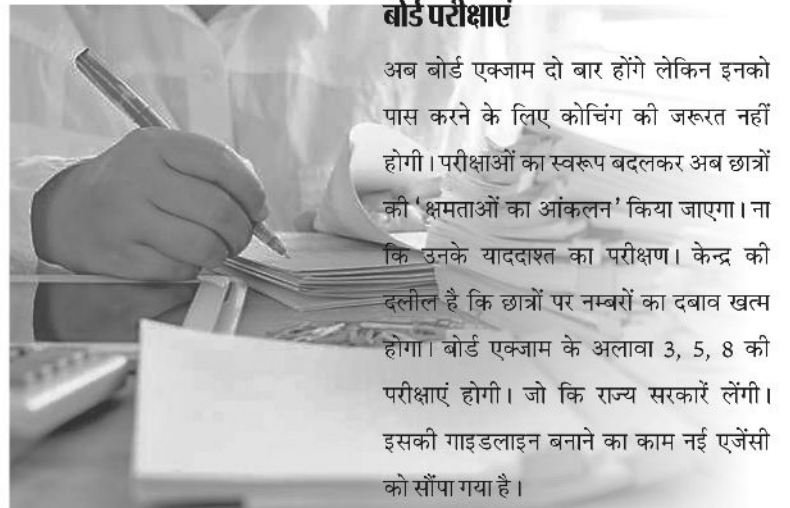 बोर्ड परीक्षाएं
अब बोर्ड एक्जाम दो बार होंगे लेकिन इनको
पास करने के लिए कोचिंग की जरूरत नहीं
होगी। परीक्षाओं का स्वरूप बदलकर अब छात्रों
की ‘क्षमताओं का आंकलन’ किया जाएगा। ना
कि उनके याददाश्त का परीक्षण। केन्द्र की
दलील है कि छात्रों पर नम्बरों का दबाव खत्म
होगा। बोर्ड एक्जाम के अलावा 3, 5, 8 की
परीक्षाएं होगी। जो कि राज्य सरकारें लेंगी।
इसकी गाइडलाइन बनाने का काम नई एजेंसी
को सौंपा गया है।